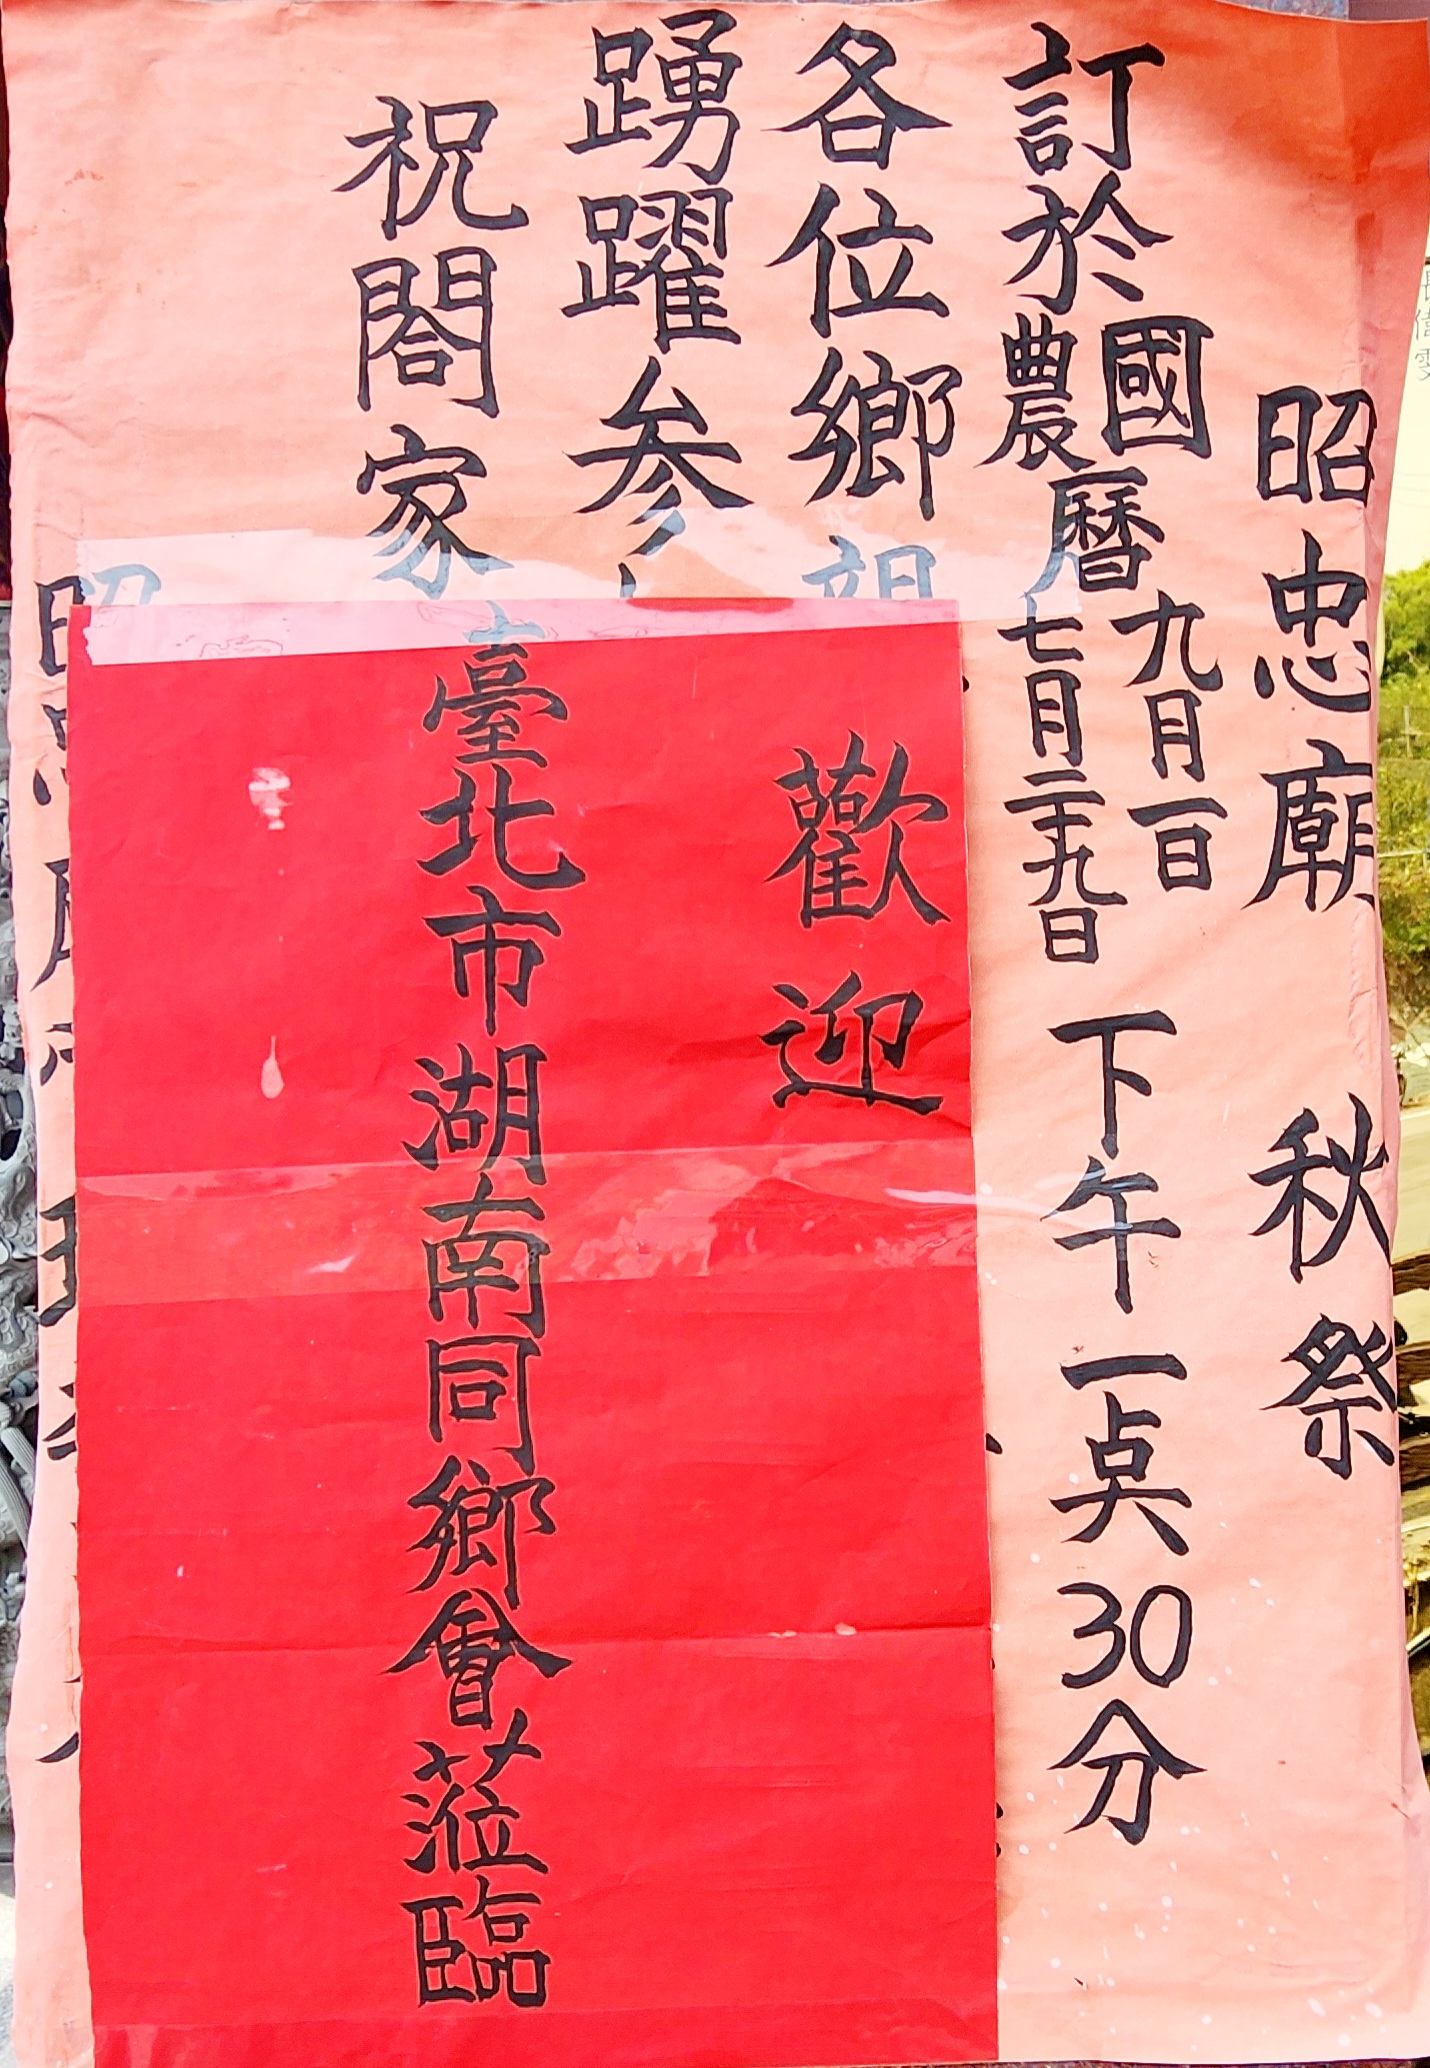 昭忠廟 秋祭
訂於國曆九月一日
農曆七月二十九日
下午一奌30分
各位鄉
踴躍参
祝閤家
歡迎
臺北市湖南同鄉會蒞臨